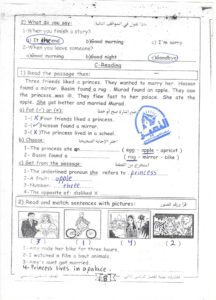 2) What do you say:
ماذا تقول في المواقف التالية
1-When you finish a story?
a) It the end b) Good morning c) I'm sorry
2-When you leave someone?
a) Good morning b) Good night c) Goodbye
C-Reading
1) Read the passage then:
Three friends liked a princess. They wanted to marry her. Hassan
found a mirror. Basim found a rug. Murad found an apple. They saw
the princess was ill. They flew fast to her palace. She ate the
apple. She got better and married Murad.
a) Put (✓) or (X):
1- (X) Four friends liked a princess.
2- (✓) Hassan found a mirror.
3- (X) The princess lived in a school.
b) Choose:
1-The princess ate ( egg - apple - apricot )
2- Basim found a ( rug - mirror - bike )
c) Get from the passage:
1-The underlined pronoun she refers to princess
2-A fruit: apple
3-Number: three
4-The opposite of: disliked X
2) Read and match sentences with pictures:
(3) (1) (4) (2)
ride her bike for three hours.
2-I watched a film about animals.
3- aunt got married.
4- Princess lives in a palace.